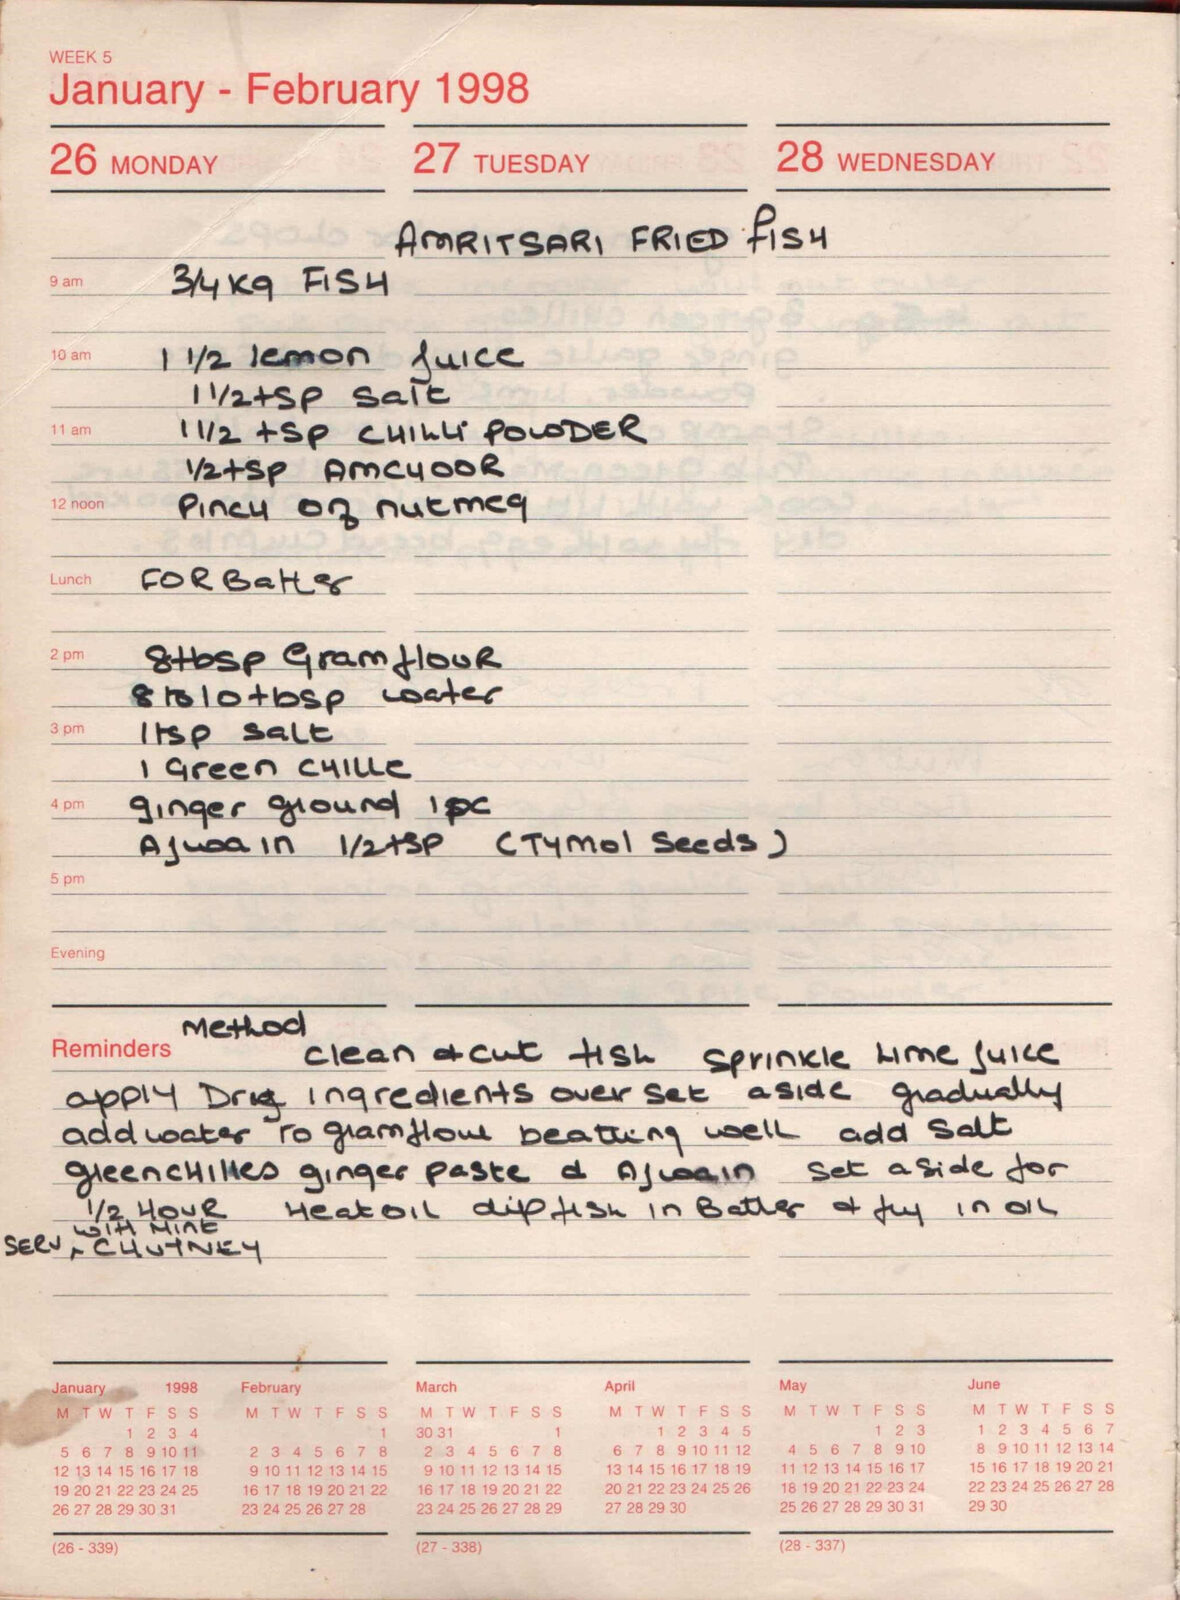 WEEK 5
January - February 1998
26 MONDAY 27 TUESDAY 28 WEDNESDAY
AMRITSARI FRIED FISH
9 am 3/4 Kg FISH
10 am 1 1/2 lemon juice
1 1/2 tsp salt
11 am 1 1/2 tsp CHILLI POWDER
1/2 tsp AMCHOOR
12 noon PINCH OF nutmeg
Lunch FOR Batter
2 pm 8 tbsp Gram flour
8 to 10 tbsp water
3 pm 1 tsp salt
1 Green CHILLE
4 pm ginger ground 1 pc
Ajwain 1/2 tsp (TYMOL Seeds)
5 pm
Evening
Method
Reminders Clean & cut fish sprinkle lime juice
apply Dry ingredients over set aside gradually
add water to gramflour beatting well add salt
greenchillies ginger paste & Ajwain set aside for
1/2 HOUR Heat OIL dip fish in Batter & fry in OIL
WITH MINT
SERV ^ CHUTNEY
January 1998 February March April May June
M T W T F S S M T W T F S S M T W T F S S M T W T F S S M T W T F S S M T W T F S S
1 2 3 4 1 30 31 1 1 2 3 4 5 1 2 3 1 2 3 4 5 6 7
5 6 7 8 9 10 11 2 3 4 5 6 7 8 2 3 4 5 6 7 8 6 7 8 9 10 11 12 4 5 6 7 8 9 10 8 9 10 11 12 13 14
12 13 14 15 16 17 18 9 10 11 12 13 14 15 9 10 11 12 13 14 15 13 14 15 16 17 18 19 11 12 13 14 15 16 17 15 16 17 18 19 20 21
19 20 21 22 23 24 25 16 17 18 19 20 21 22 16 17 18 19 20 21 22 20 21 22 23 24 25 26 18 19 20 21 22 23 24 22 23 24 25 26 27 28
26 27 28 29 30 31 23 24 25 26 27 28 23 24 25 26 27 28 29 27 28 29 30 25 26 27 28 29 30 31 29 30
(26 - 339) (27 - 338) (28 - 337)